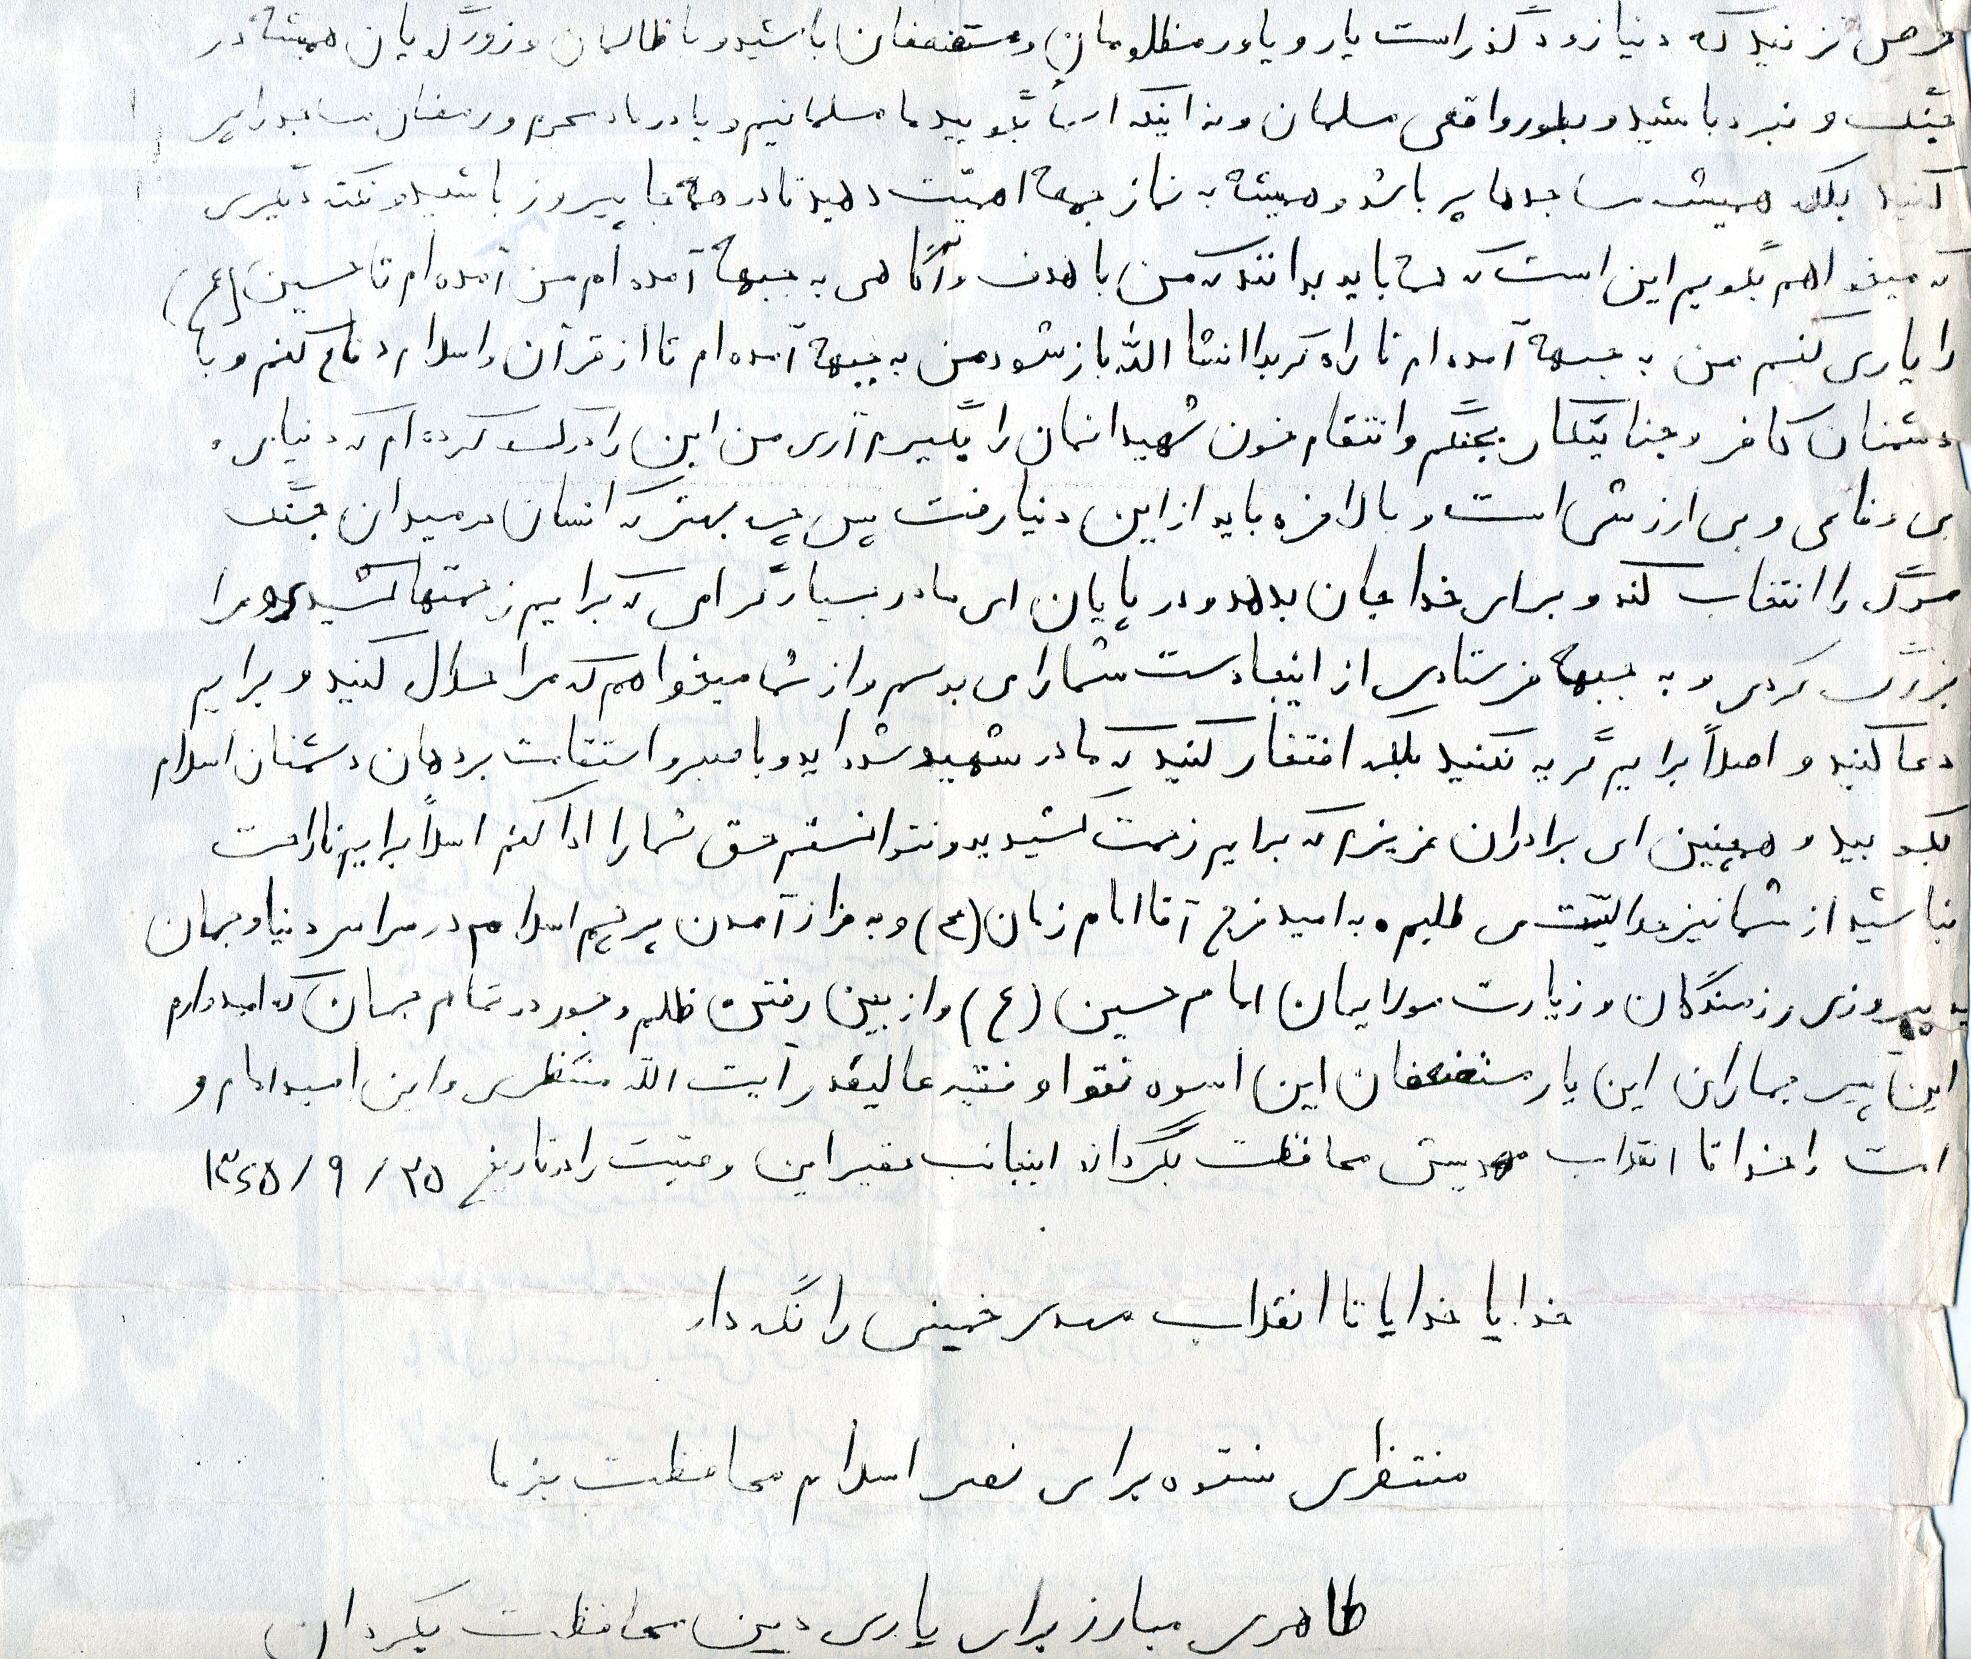 حرص نزنید که دنیا زود گذر است یار و یاور مظلومان و مستضعفان باشید و با ظالمان و زورگویان همیشه در
جنگ و نبرد باشید و بطور واقعی مسلمان و نه اینکه اسماً بگویید ما مسلمانیم و یا در ماه محرم و رمضان مساجد را پر
کنید بلکه همیشه مساجدها پر باشد و همیشه به نماز جمعه اهمیّت دهید تا در همه جا پیروز باشید و نکته دیگری
که میخواهم بگویم این است که همه باید بدانند که من با هدف و آگاهی به جبهه آمده ام من آمده ام تا حسین (ع)
را یاری کنم من به جبهه آمده ام تا راه کربلا انشا الله باز شود من به جبهه آمده ام تا از قرآن و اسلام دفاع کنم و با
دشمنان کافر و جنایتکار بجنگم و انتقام خون شهیدانمان را بگیرم آری من این را درک کرده ام که دنیا بی
بی وفایی و بی ارزشی است و بالاخره باید از این دنیا رفت پس چه بهتر که انسان در میدان جنگ
مرگ را انتخاب کند و برای خدا جان بدهد و در پایان ای مادر بسیار گرامی که برایم زحمتها کشیدی و مرا
بزرگ کردی و به جبهه فرستادی از اینجا دست شما را می بوسم و از شما میخواهم که مرا حلال کنید و برایم
دعا کنید و اصلاً برایم گریه نکنید بلکه افتخار کنید که مادر شهید شده اید و با صبر و استقامت بر دهان دشمنان اسلام
بکوبید و همچنین ای برادران عزیزم که برایم زحمت کشیدید و نتوانستم حق شما را ادا کنم اصلاً برایم ناراحت
نباشید از شما نیز حلالیّت می طلبم به امید فرج آقا امام زمان (ع) و به فراز آمدن پرچم اسلام در سراسر دنیا و جهان
به پیروزی رزمندگان و زیارت مولایمان امام حسین (ع) و از بین رفتن ظلم و جور در تمام جهان که امیدوارم
این پیر جماران این یار مستضعفان این اسوه تقوا و فقیه عالیقدر آیت الله منتظری و این امید امام و
امت را خدا تا انقلاب مهدیش محافظت بگرداند اینجانب حقیر این وصیّت را در تاریخ ۱۳۶۵/۹/۲۵
خدایا خدایا تا انقلاب مهدی خمینی را نگه دار
منتظری ستوه برای نصر اسلام محافظت بفرما
طاهری مبارز برای یاری دین محافظت بگردان